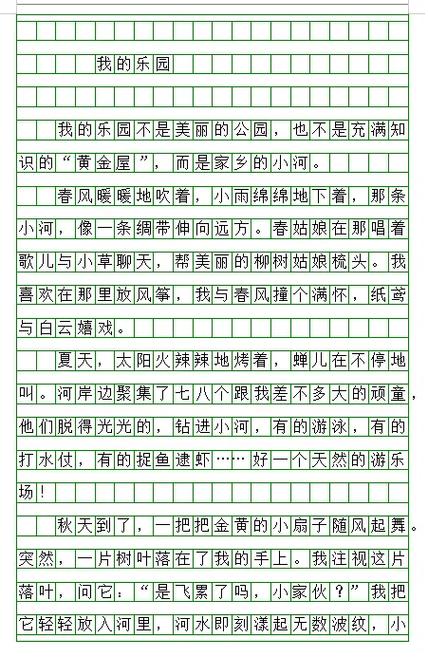 我的乐园
我的乐园不是美丽的公园，也不是充满知
识的“黄金屋”，而是家乡的小河。
春风暖暖地吹着，小雨绵绵地下着，那条
小河，像一条绸带伸向远方。春姑娘在那唱着
歌儿与小草聊天，帮美丽的柳树姑娘梳头。我
喜欢在那里放风筝，我与春风撞个满怀，纸鸢
与白云嬉戏。
夏天，太阳火辣辣地烤着，蝉儿在不停地
叫。河岸边聚集了七八个跟我差不多大的顽童，
他们脱得光光的，钻进小河，有的游泳，有的
打水仗，有的捉鱼逮虾……好一个天然的游乐
场！
秋天到了，一把把金黄的小扇子随风起舞。
突然，一片树叶落在了我的手上。我注视这片
落叶，问它：“是飞累了吗，小家伙？”我把
它轻轻放入河里，河水即刻漾起无数波纹，小